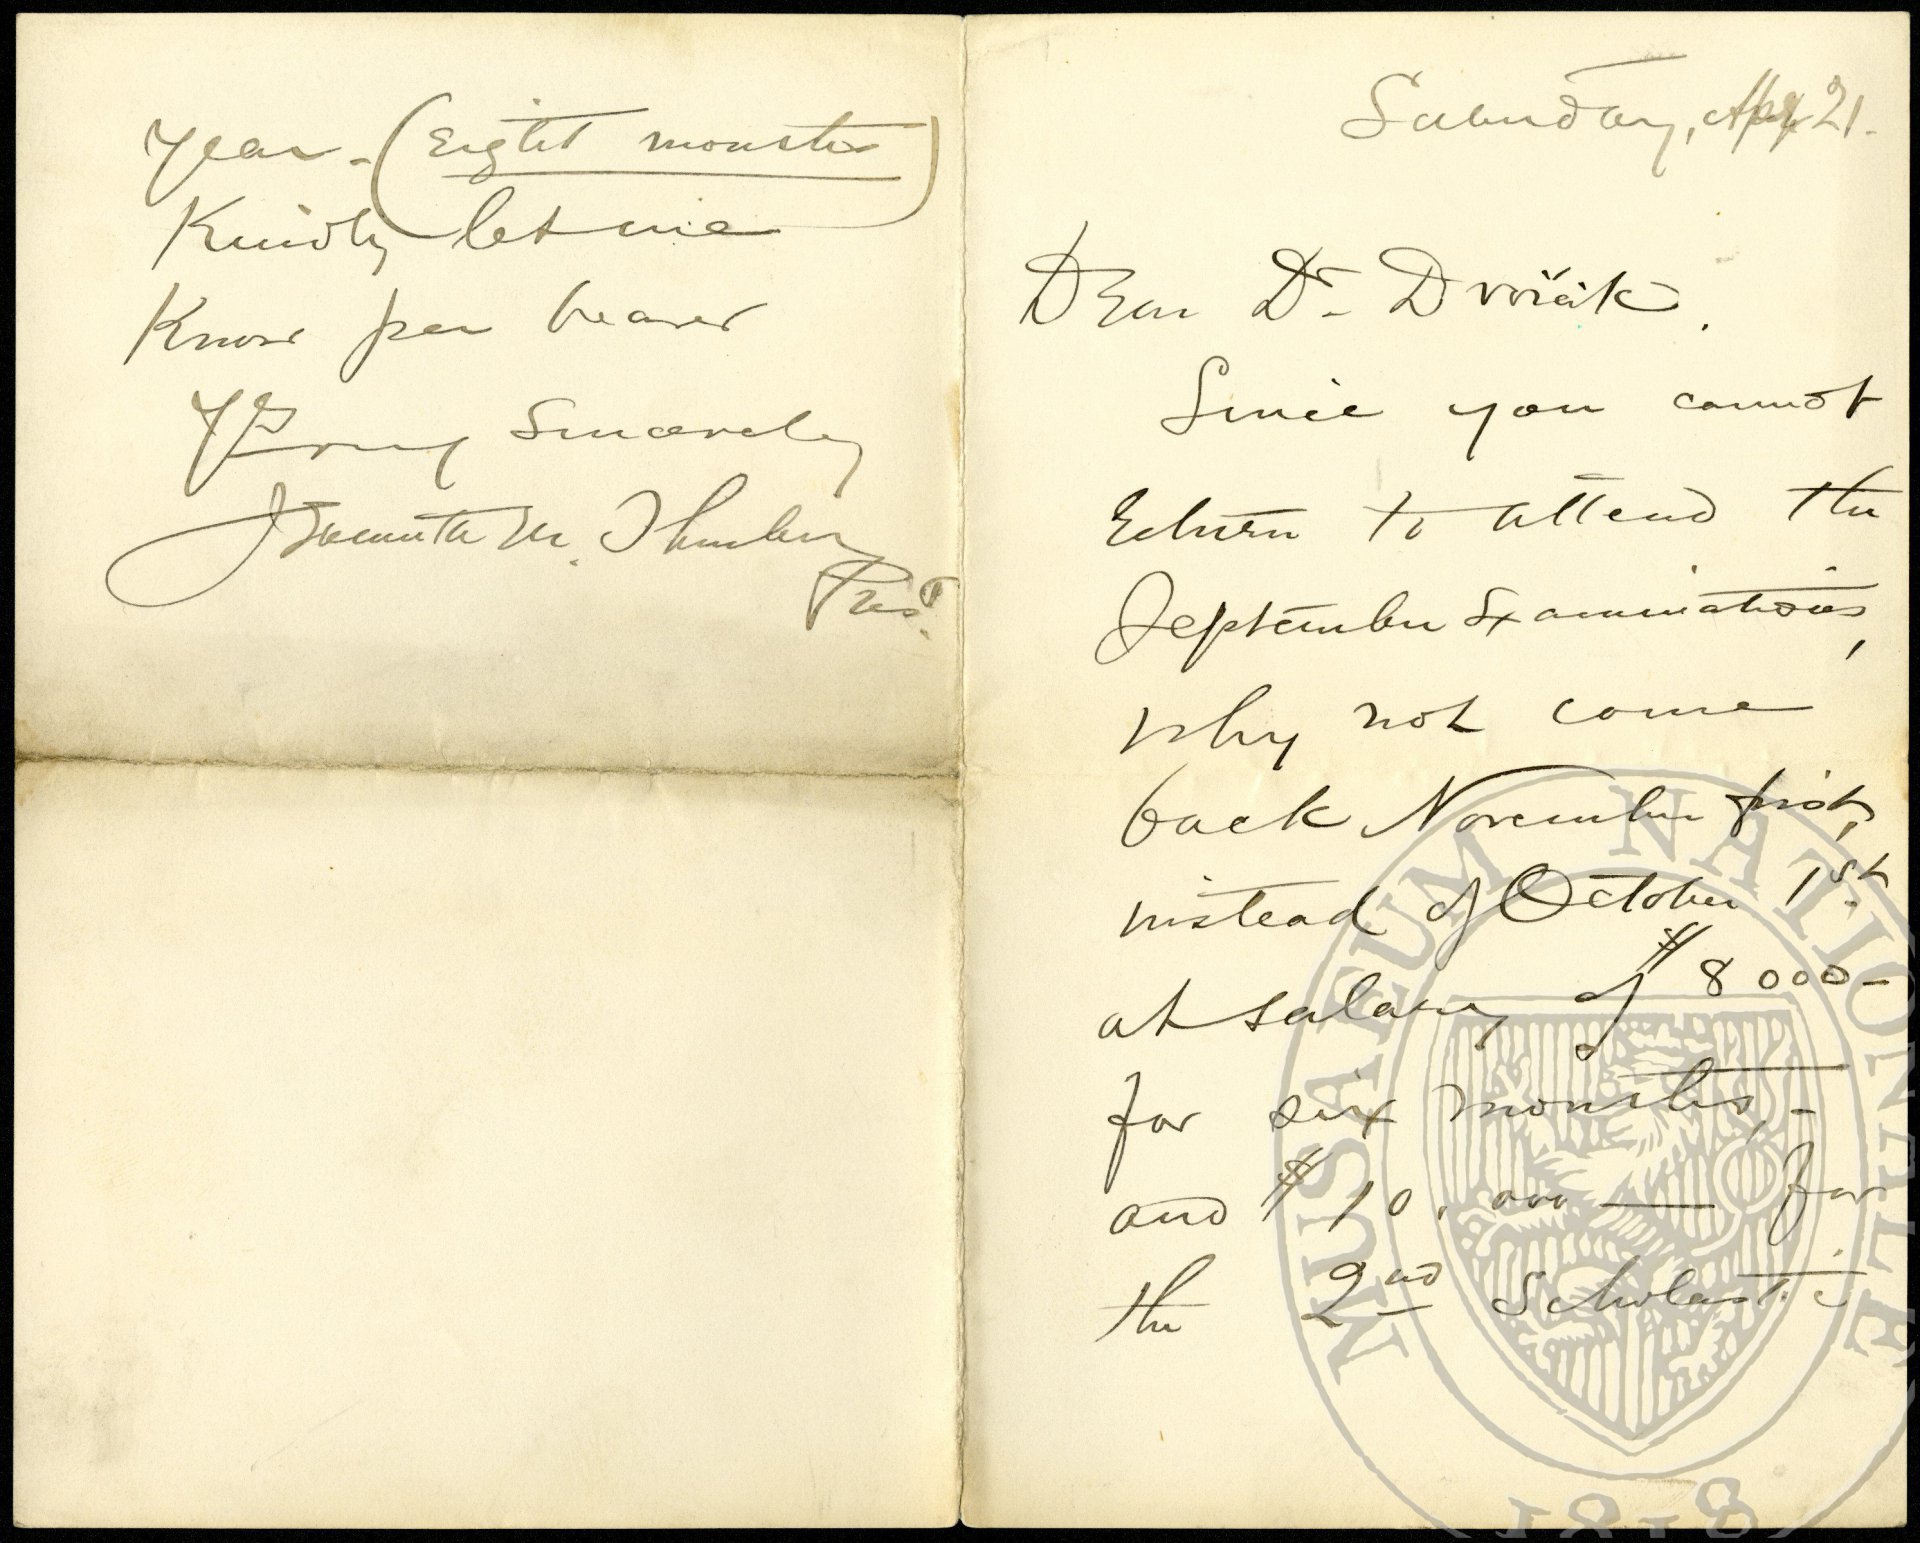 Saturday, Apr 21.
Dear Dr. Dvořák.
Since you cannot
return to attend the
September Examinations,
why not come
back November first,
instead of October 1st.
at salary of $8000-
for six months, -
and $10,000 — for
the 2nd Scholastic
year - (Eight months)
Kindly let me
Know per bearer
Yrs very Sincerely
Jeannette M. Thurber
Prest.
MUSAEUM NATIONALE
1818